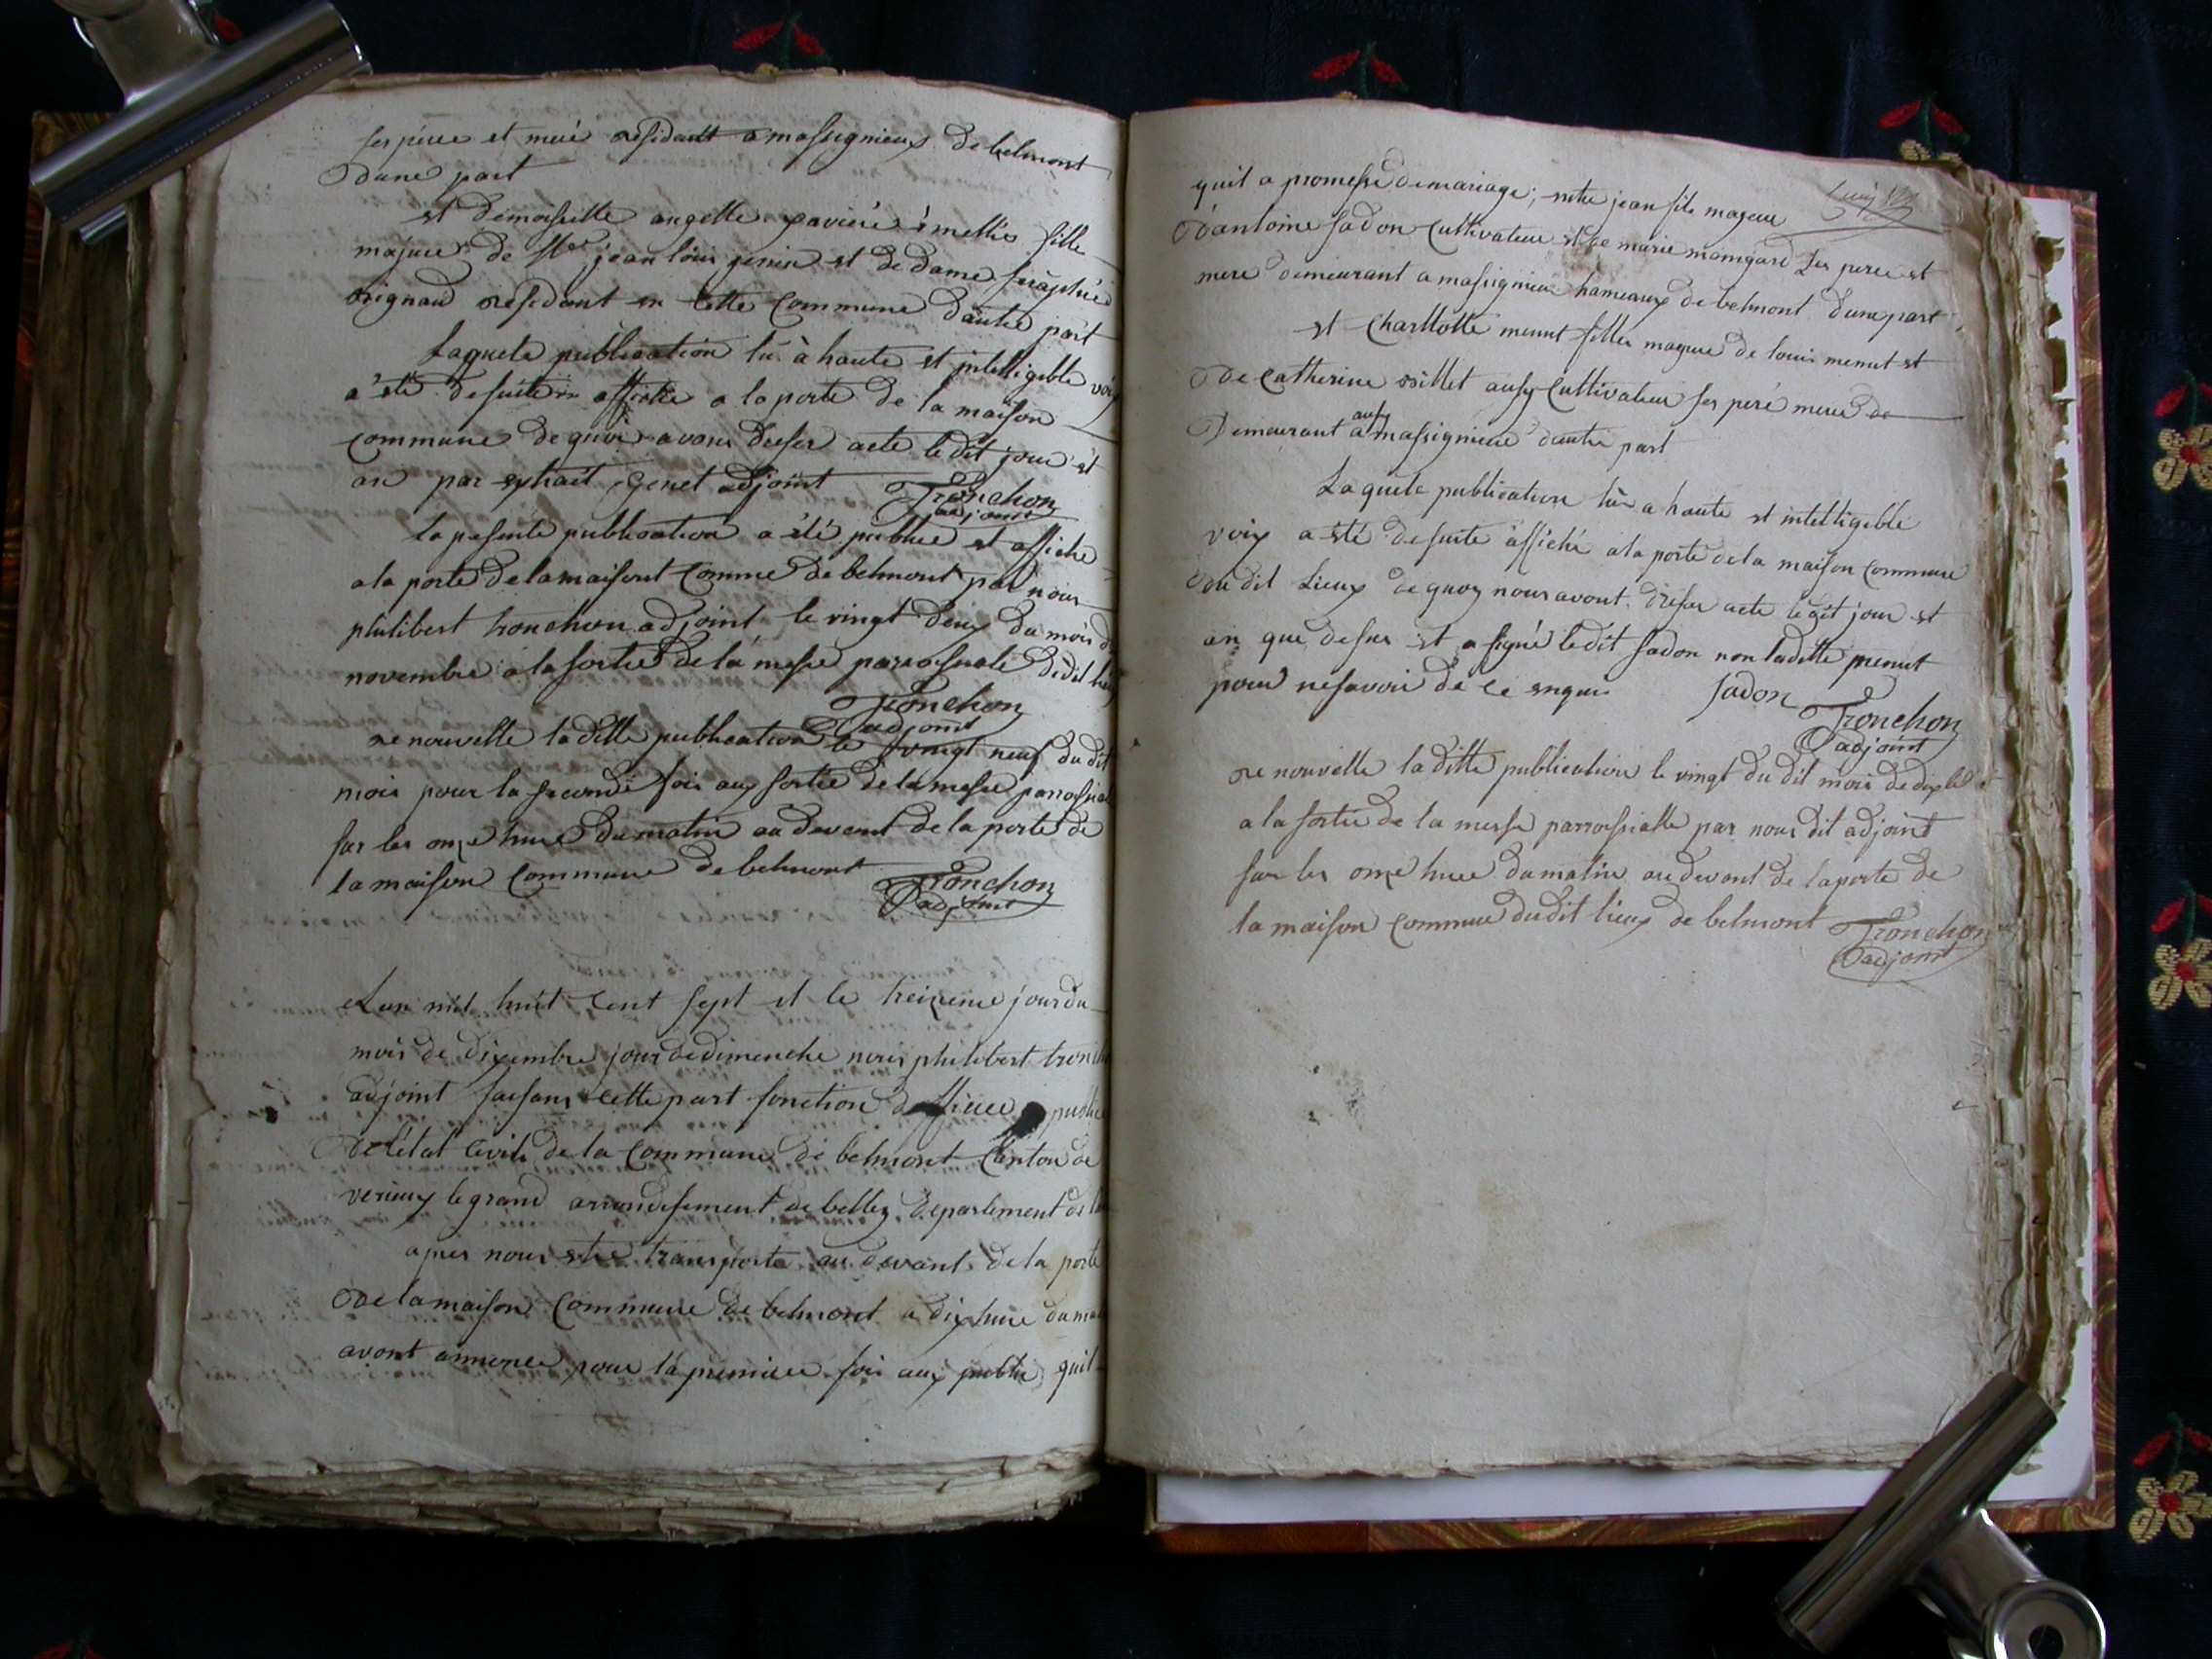 ses pere et mere residant a massignieux de belmont
dune part
et demoiselle angelle xaviere emellie fille
majeure de Sr jean louis genin et de dame seraphie
brignaud residant en cette Commune dautre part
Laquele publication lu à haute et intelligible voix
a été desuite affiché a la porte de la maison
commune de quoi avons dresser acte le dit jour et
an par extrait genet adjoint Tronchon
adjoint
la presente publication a été publiee et affiche
a la porte de la maisont Comme de belmont par nous
philibert tronchon adjoint le vingt deux du mois de
novembre a la sortie de la messe parroissiale dudit lieu
Tronchon
adjoint
renouvelle la ditte publication le vingt neuf du dit
mois pour la seconde fois aux sortie de la messe parroissiale
sur les onze hure du matin au devant de la porte de
la maison Commune de belmont Tronchon
adjoint
Lan mil huit Cent sept et le treizieme jour du
mois de dixembre jour de dimenche nous philibert tronch
adjoint faisans cette part fonction dofficier public
de létat Civile de la Commune de belmont Canton de
verieux le grand arrondissement de belley departement de l
apres nous etre transporte au devant de la porte
de la maison Commune de belmont a dix hure du ma
avont annoncer pour la premiere fois aux public quil
quil a promesse de mariage; entre jean fils mageur
d'antoine sadon Cultivateur et de marie maingard ses pere et
mere demeurant a massignieu hameaux de belmont dune part
et Charllotte menut filles mageure de louis menut et
de Catherine sillet ausy Cultivateur ses peré mere de
Demeurant ausy a massignieux dautre part
Laquele publication lu a haute et intelligible
voix a été desuite affiché a la porte de la maison Commune
du dit Lieux de quoy nous avont dresser acte le dit jour et
an que desus et a signé ledit sadon non laditte menut
pour ne savoir de ce enquis Sadon Tronchon
adjoint
renouvelle la ditte publication le vingt du dit mois de dixbre
a la sortie de la messe parroissialle par nous dit adjoint
sur les onze hure du matin au devant de la porte de
la maison Commune dudit lieux de belmont Tronchon
adjoint